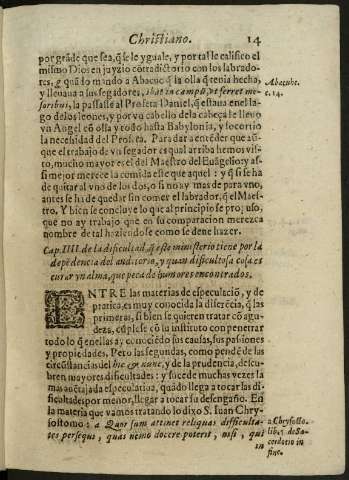 Christiano. 14
por grãde que sea, q̃ se le yguale, y por tal le califico el
mismo Dios en juyzio cõtradictorio con los labrado-
res, quãdo mandò a Abacuc q̃ la olla q̃ tenia hecha,
y lleuaua a sus segadores, ibat in campũ, vt ferret mes-
soribus, la passasse al Profeta Daniel, q̃ estaua en el la-
go de los leones, y por vn cabello de la cabeça le lleuo
vn Angel cõ olla y todo hasta Babylonia, y socorrio
la necesidad del Profeta. Para dar a entẽder que aũ-
que el trabajo de vn segador es qual arriba hemos vis-
to, mucho mayor es el del Maestro del Euãgelio: y as-
si mejor merece la comida este que aquel: y q̃ si se ha
de quitar al vno de los dos, o si no ay mas de para vno,
antes se ha de quedar sin comer el labrador, q̃ el Maes-
tro. Y bien se concluye lo que al principio se propuso,
que no ay trabajo que en su comparacion merezca
nombre de tal haziendose como se deue hazer.
Abacuhc.
c. 14.
Cap. IIII. de la dificultad, q̃ este ministerio tiene por la
depẽdencia del auditorio, y quan dificultosa cosa es
curar vn alma, que peca de humores encontrados.
ENTRE las materias de especulaciõ, y de
pratica, es muy conocida la diferẽcia, q̃ las
primeras, si bien se quieren tratar cõ agu-
deza, cũplese cõ su instituto con penetrar
todo lo q̃ en ellas ay, conociẽdo sus causas, sus passiones
y propiedades. Pero las segundas, como pendẽ de las
circũstancias del hic & nunc, y de la prudencia, descu-
bren mayores dificultades: y sucede muchas vezes la
mas auẽtajada especulatiua, quãdo llega a tocar las di-
ficultades por menor, llegar a tocar su desengaño. En
la materia que vamos tratando lo dixo S. Iuan Chry-
sostomo: a Quorsum attinet reliquas difficulta-
tes persequi, quas nemo docere poterit, nisi, qui
in
a Chrysosto.
lib. 5 de Sa-
cerdotio in
fine.